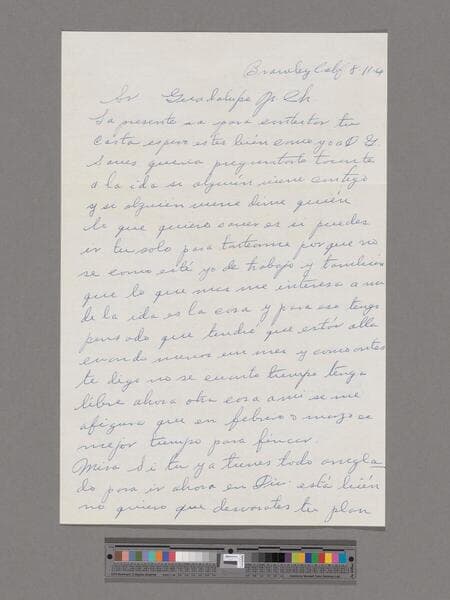 Brawley Calif 8-11-6
Sr Guadalupe Jr Ch
La presente es para contestar tu
carta espero estes bién como yo a D G.
Saves queria preguntarte tocante
a la ida si alguién viene contigo
y si alguien viene dime quién
lo que quiero saver es si puedes
ir tu solo para tantearme porque no
se como esté yo de trabajo y también
que lo que mas me interesa a mi
de la ida es la cosa y para eso tengo
pensado que tendré que estár alla
cuando menos un mes y como antes
te digo no se cuanto tiempo tenga
libre ahora otra cosa a mi se me
afigura que en febrero o marzo es
mejor tiempo para fincar.
Mira si tu ya tienes todo arregla
do para ir ahora en Dic. está bién
no quiero que desvarates tu plan